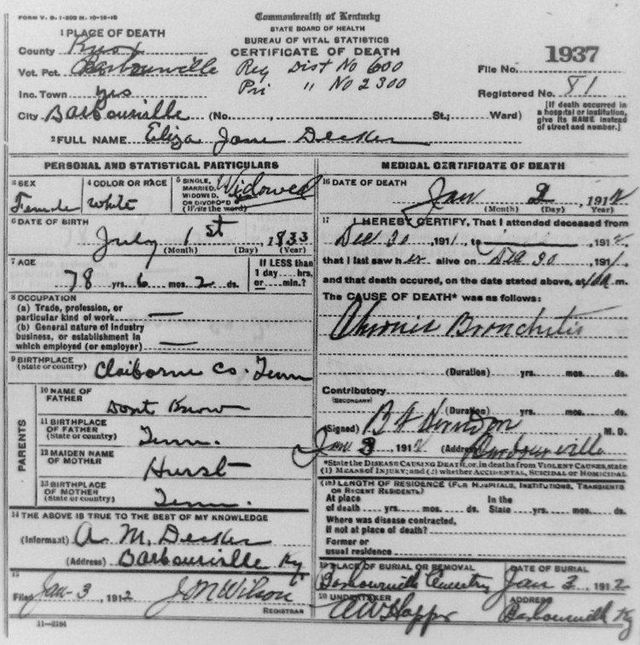 FORM V. S. 1-200 M. 10-18-10
Commonwealth of Kentucky
STATE BOARD OF HEALTH
BUREAU OF VITAL STATISTICS
CERTIFICATE OF DEATH
1 PLACE OF DEATH
County Knox
Vot. Pct. Barbourville Reg Dist No 600
Inc. Town yes Pri " No 2300
1937
File No.
Registered No. 81
City Barbourville (No. St.; Ward)
[If death occurred in a hospital or institution, give its NAME instead of street and number.]
2 FULL NAME Eliza Jane Decker
PERSONAL AND STATISTICAL PARTICULARS
3 SEX Female
4 COLOR OR RACE White
5 SINGLE, MARRIED, WIDOWED, OR DIVORCED (Write the word) Widowed
6 DATE OF BIRTH
July 1st 1833
(Month) (Day) (Year)
7 AGE
78 yrs. 6 mos. 2 ds.
If LESS than 1 day....hrs. or....min.?
8 OCCUPATION
(a) Trade, profession, or particular kind of work
(b) General nature of industry business, or establishment in which employed (or employer)
9 BIRTHPLACE
(State or country) Claiborne Co. Tenn
PARENTS
10 NAME OF FATHER Dont Know
11 BIRTHPLACE OF FATHER (State or country) Tenn.
12 MAIDEN NAME OF MOTHER Hurst
13 BIRTHPLACE OF MOTHER (State or country) Tenn.
14 THE ABOVE IS TRUE TO THE BEST OF MY KNOWLEDGE
(Informant) A. M. Decker
(Address) Barbourville Ky.
15
Filed Jan-3, 1912 J M Wilson
REGISTRAR
11-3184
MEDICAL CERTIFICATE OF DEATH
16 DATE OF DEATH
Jan 2, 1912
(Month) (Day) (Year)
17 I HEREBY CERTIFY, That I attended deceased from
Dec 30, 1911, to 1912
that I last saw her alive on Dec 30, 1911,
and that death occured, on the date stated above, at m.
The CAUSE OF DEATH* was as follows:
Chronic Bronchitis
(Duration) yrs. mos. ds.
Contributory
(SECONDARY)
(Duration) yrs. mos. ds.
(Signed) M. D.
Jan 3, 1912 (Address) Barbourville
*State the DISEASE CAUSING DEATH, or, in deaths from VIOLENT CAUSES, state (1) MEANS OF INJURY; and (2) whether ACCIDENTAL, SUICIDAL or HOMICIDAL
18 LENGTH OF RESIDENCE (FOR HOSPITALS, INSTITUTIONS, TRANSIENTS OR RECENT RESIDENTS).
At place of death yrs. mos. ds. In the State yrs. mos. ds.
Where was disease contracted, if not at place of death?
Former or usual residence
19 PLACE OF BURIAL OR REMOVAL
Barbourville Cemetery
DATE OF BURIAL
Jan 3, 1912
20 UNDERTAKER
ADDRESS
Barbourville Ky